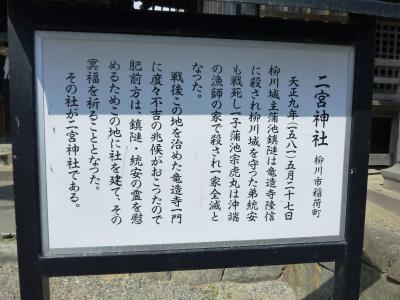 二宮神社 柳川市稲荷町
天正九年(一五八一)五月二十七日
柳川城主蒲池鎮漣は竜造寺隆信
に殺され柳川城を守った弟統安
も戦死し一子蒲池宗虎丸は沖端
の漁師の家で殺され一家全滅と
なった。
戦後この地を治めた竜造寺一門
に度々不吉の兆候がおこったので
肥前方は、鎮漣・統安の霊を慰
めるためこの地に社を建て、その
冥福を祈ることとなった。
その社が二宮神社である。